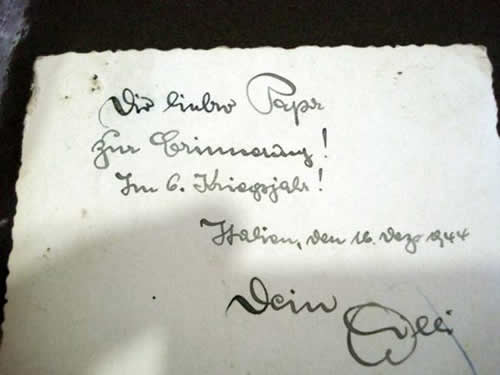 Dir lieber Papa
Zur Erinnerung!
Im 6. Kriegsjahr!
Italien, den 16. Dez 1944
Dein